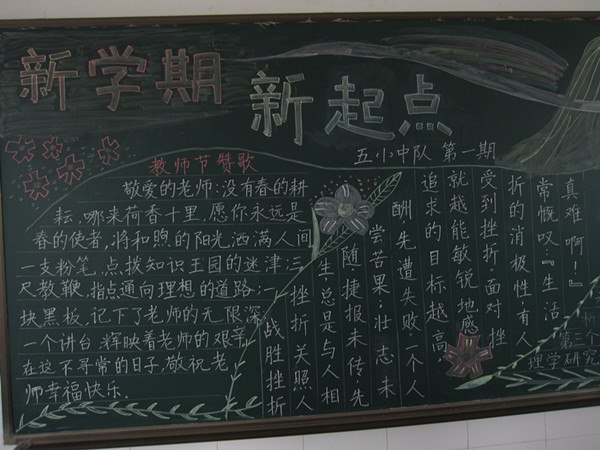 新学期
新起点
五小中队 第一期
教师节赞歌
敬爱的老师:没有春的耕
耘,哪来荷香十里,愿你永远是
春的使者,将和煦的阳光,洒满人间
一支粉笔,点拨知识王园的迷津;三
尺教鞭,指点通向理想的道路;一
块黑板,记下了老师的无限深
一个讲台,辉映着老师的艰辛
在这不寻常的日子,敬祝老
师幸福快乐.
战胜挫折
挫折关照人
生,总是与人相
随.捷报未传,先
尝苦果;壮志未
酬先遭失败.一个人
追求的目标越高
就越能敏锐地感
受到挫折.面对挫
折的消极性,有人
常慨叹『生活
真难啊!』
第三个
理学研究